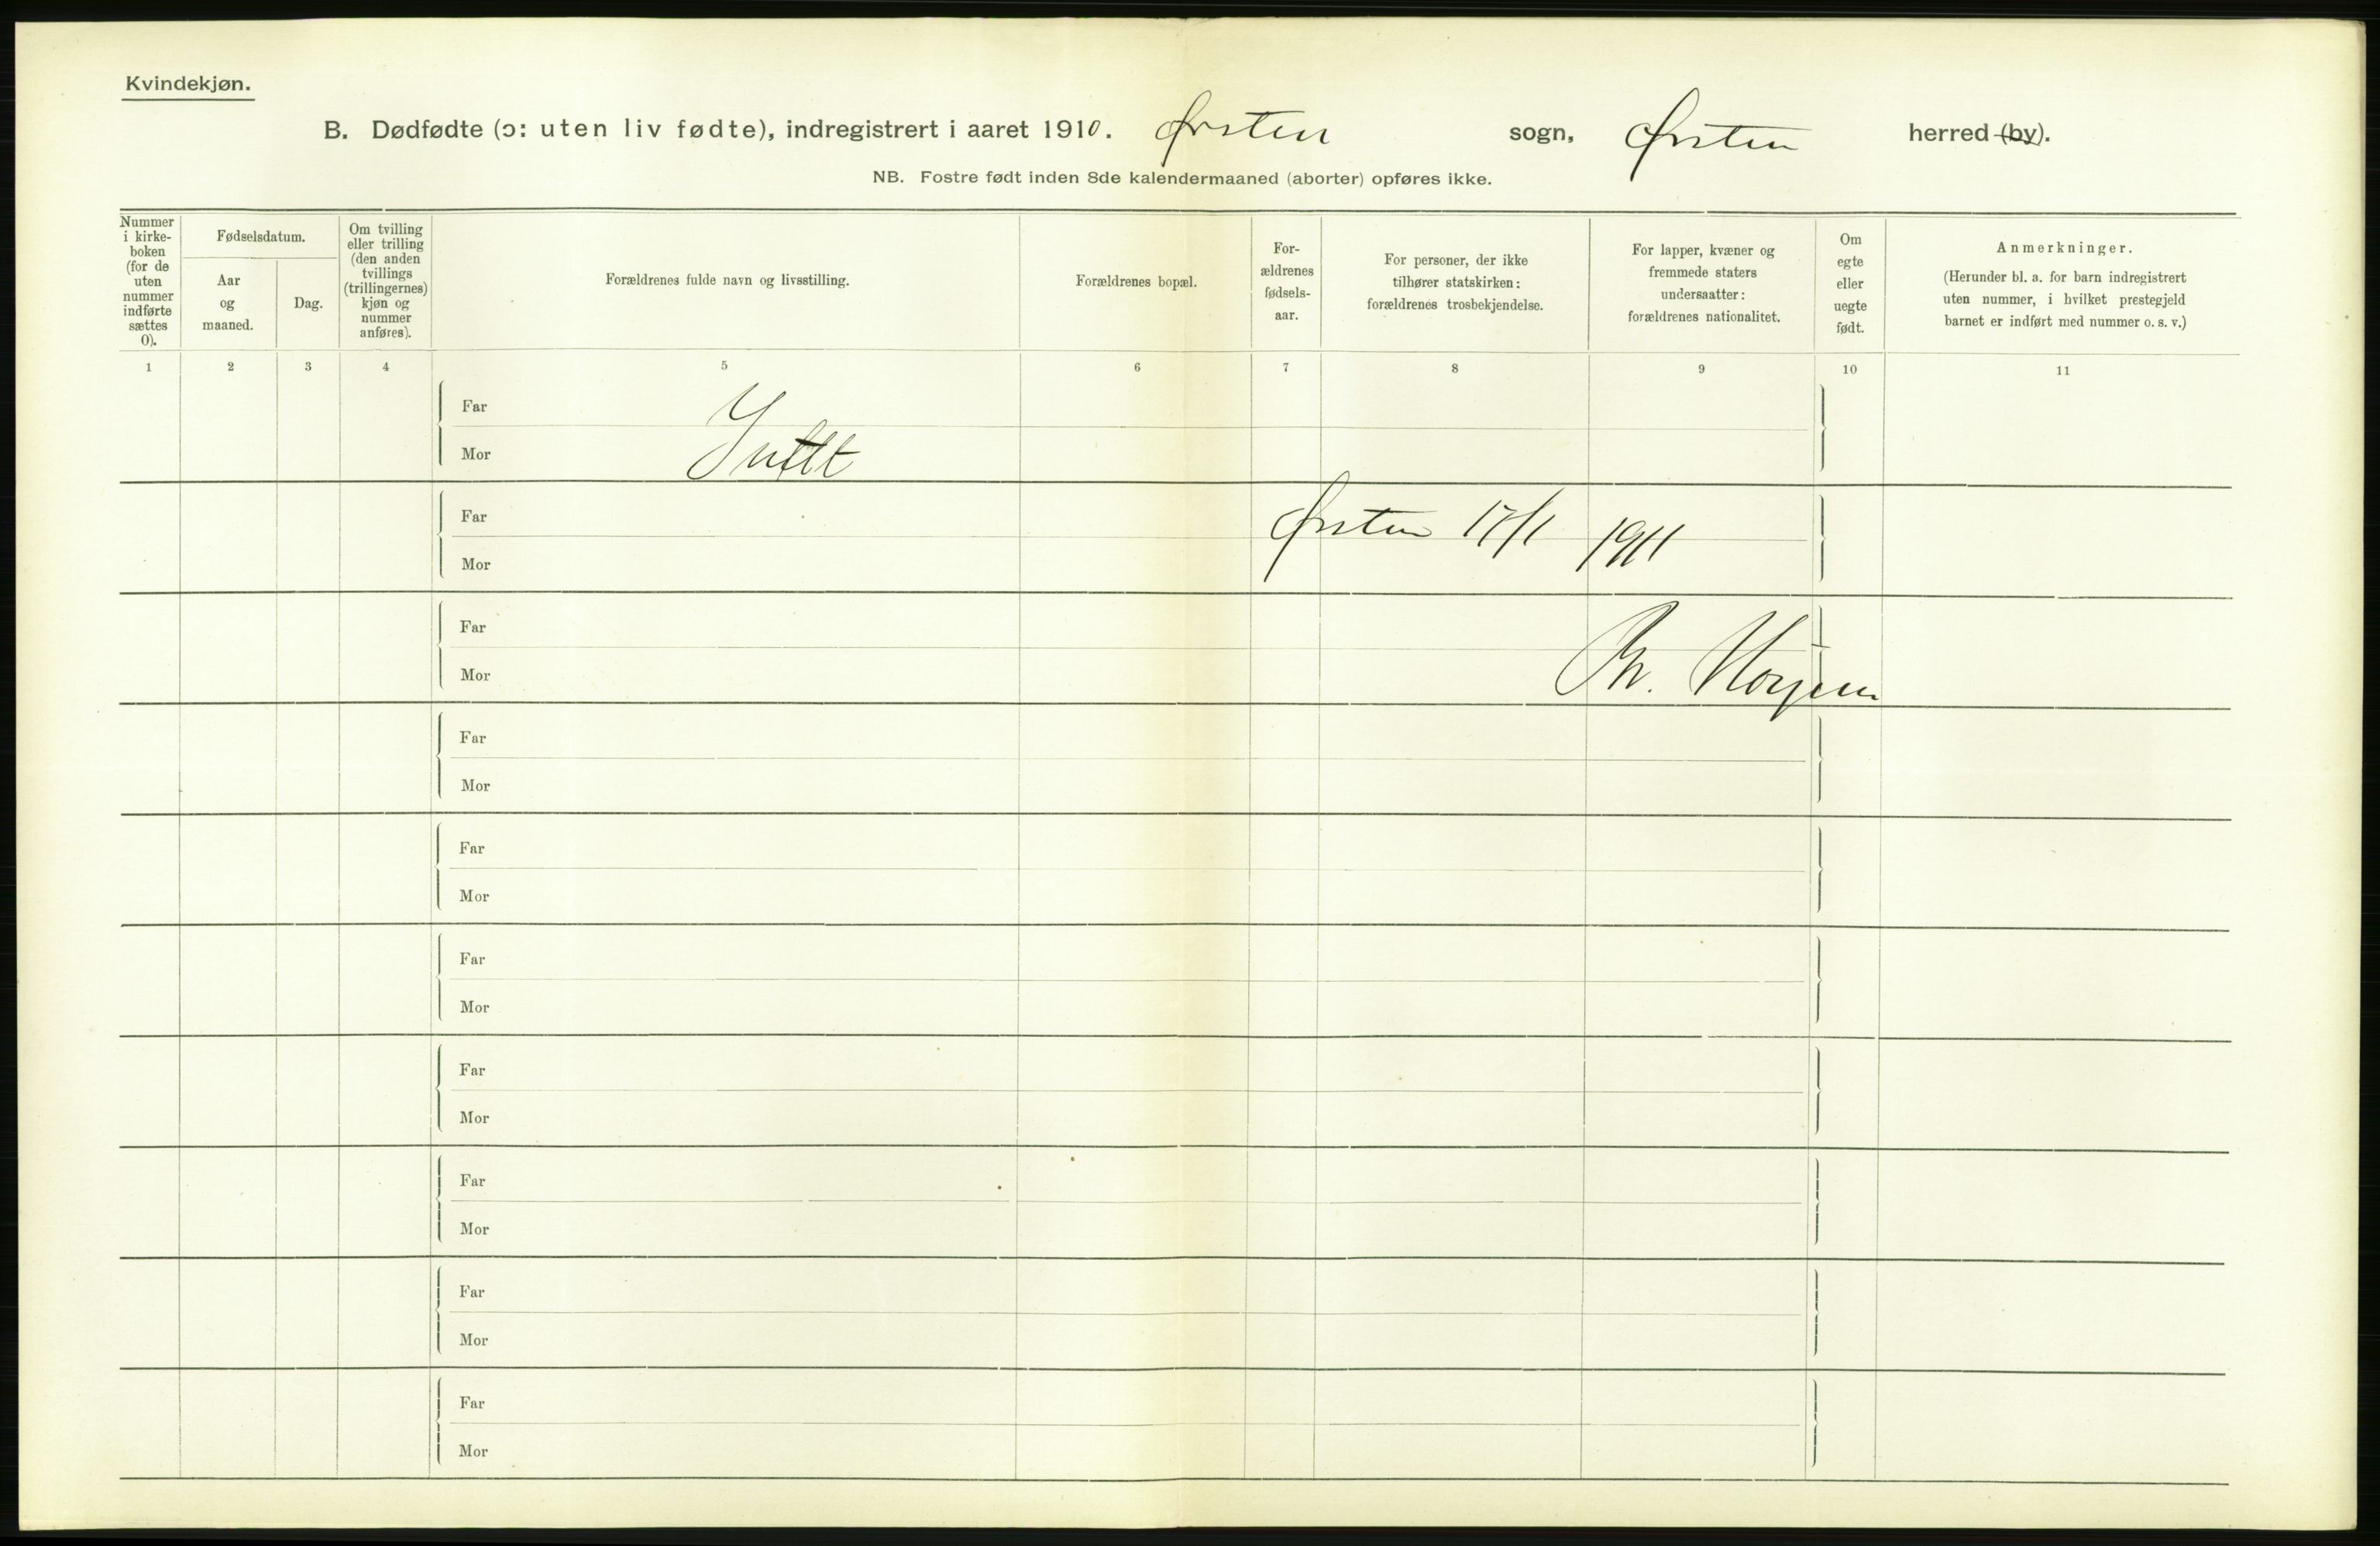 Kvindekjøn.
B. Dødfødte (ɔ: uten liv fødte), indregistrert i aaret 1910. Ørsten sogn, Ørsten herred (by).
NB. Fostre født inden 8de kalendermaaned (aborter) opføres ikke.
Nummer
i kirke-
boken
(for de
uten
nummer
indførte
sættes
0).
Fødselsdatum.
Aar
og
maaned.
Dag.
Om tvilling
eller trilling
(den anden
tvillings
(trillingernes)
kjøn og
nummer
anføres).
Forældrenes fulde navn og livsstilling.
Forældrenes bopæl.
For-
ældrenes
fødsels-
aar.
For personer, der ikke
tilhører statskirken:
forældrenes trosbekjendelse.
For lapper, kvæner og
fremmede staters
undersaatter:
forældrenes nationalitet.
Om
egte
eller
uegte
født.
Anmerkninger.
(Herunder bl. a. for barn indregistrert
uten nummer, i hvilket prestegjeld
barnet er indført med nummer o. s. v.)
1 2 3 4 5 6 7 8 9 10 11
Far
Mor
Far
Ørsten 17/1 1911
Mor
Far
Mor
Far
Mor
Far
Mor
Far
Mor
Far
Mor
Far
Mor
Far
Mor
Far
Mor